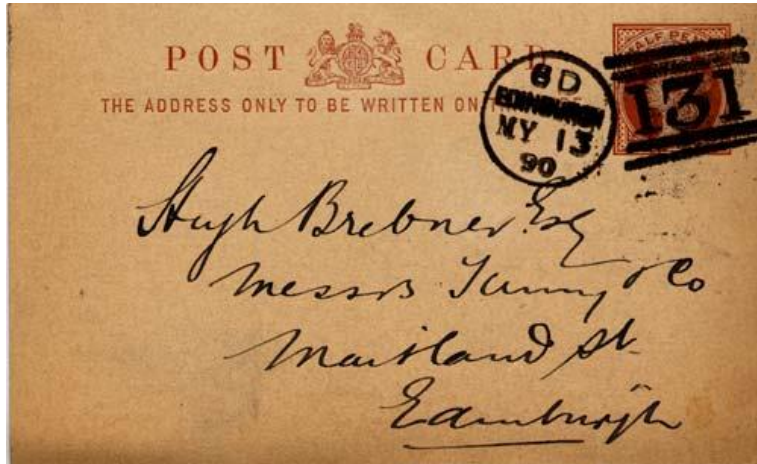 POST CARD
THE ADDRESS ONLY TO BE WRITTEN ON
HALF PE
6D
EDINBURGH
MY 13
90
131
Hugh Brebner Esq
Messrs Tunny & Co
Maitland St.
Edinburgh